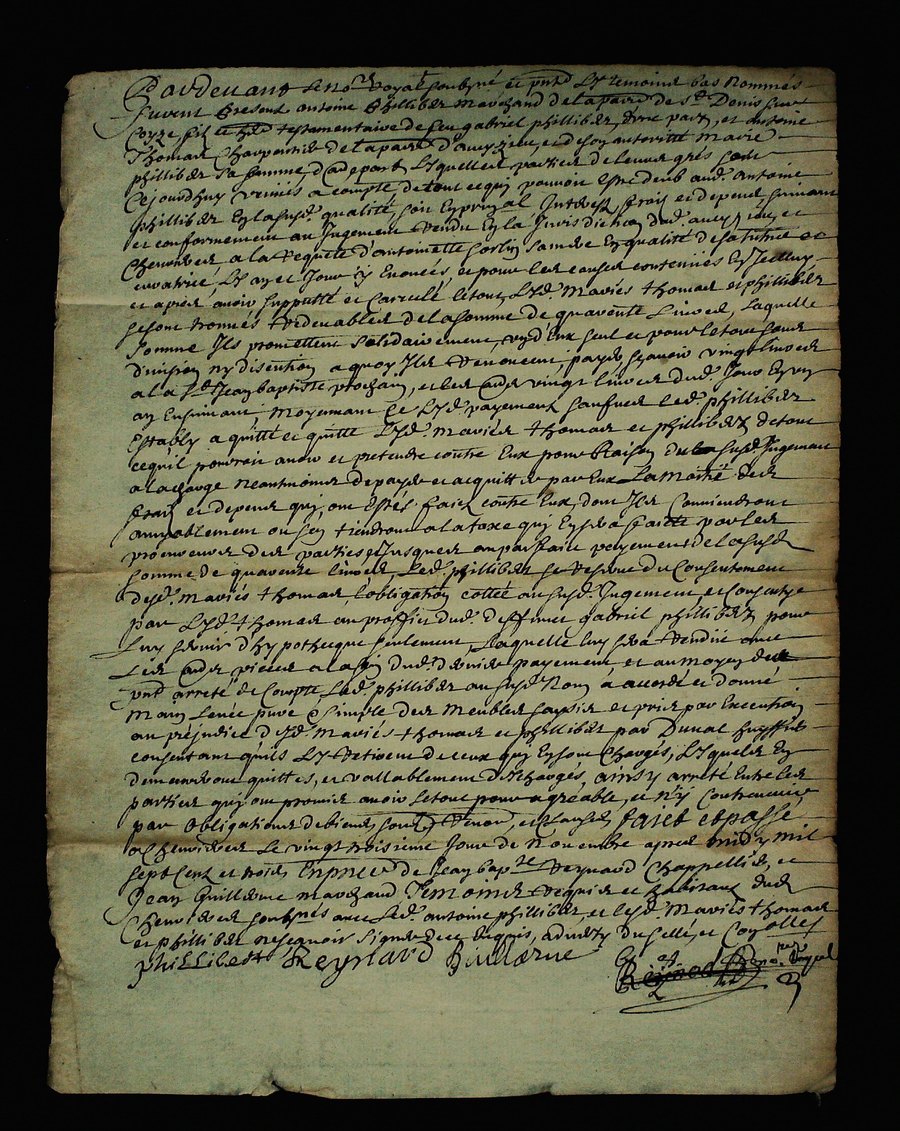 Pardevant le no.re royal soubsigné et pnts Les temoins bas nommés
furent presents antoine philliber marchand de la parre de St Denis sur
Coyze fils et her testamentaire de feu gabriel philliber, d'une part, et antoine
Thomas Charpentier de la parre d'aveyzieu et de son autorité marie
philliber sa femme d'autre part, Lesquelles parties de leurs grés sont
Cejourdhuy venües a compte de tout ce qui pouvoit estre deub aud. antoine
philliber En lasusd. qualité soit En principal Interest frais et depens suivant
et conformement au Jugement rendu En la Jurisdiction dud. aveyzieu, et
Chevrieres a la requete d'antoinette en qualité de sa tutrice et
curatrice Les an et Jour y Enoncés, et pour les causes contenües En Icelluy
et apres avoir supputté et Calculé le tout Lesd. Mariés thomas et philliber
se sont trouvés redevables de la somme de quarente Livres, Laquelle
somme Ils promettent solidairement, un d'Eux seul et pour le tout sans
division ny discution a quoy Ils renoncent payer sçavoir vingt livres
a la St Jean baptiste prochain, et les autres vingt livres dud. Jour En un
an Ensuivant moyennant Ce Lesd. payements sauf led. philliber
Estably a quitté et quitte Lesd. mariés thomas et philliber de tout
ce quil pourroit avoir et pretendre contre Eux pour Raison du susd. Jugement
a la charge neantmoins de payer et acquitter par Eux La moitié des
frais et depens qui ont Estés faits contre Eux, dont Ils Conviendront
amiablement ou s'en tiendront a la taxe qui En sera faitte par les
procureurs des parties et Jusques au parfait payement de la susd.
somme de quarente livres, Led. philliber se reserve du Consentement
desd. mariés thomas, l'obligation cottée au susd. Jugement, et Consentye
par Lesd. thomas au proffit dud. deffunct gabriel philliber pour
Luy servir d'hypotheque seulement Laquelle luy sera rendüe avec
Les autres pieces a la fin dud. dernier payement, et au moyen du
pnt arreté de Compte Led. philliber au susd. Nom a accordé et donné
Main levée pure & simple des meubles saysis et pris par Execution
au préjudice desd. mariés thomas et philliber par Duval huissier
consentant qu'ils Les retirent de ceux qui En sont Chargés, Lesquels En
demeureront quittes, et vallablement deschargés, ainsy arreté Entre les
parties qui ont promis avoir le tout pour agréable, et n'y Contrevenir
par obligations de biens, soub.ons renon. et clauses, faict et passé
a Chevrieres Le vingt troisieme Jour de Novembre apres midy mil
sept Cent et trois En pnce de Jean bap.te Reynaud Chappellier, et
Jean Guillerme marchand Temoins requis et habitants dud.
Chevrieres soub.nés avec Led. antoine philliber, et lesd. mariés thomas
et philliber ne sçavoir signer de ce Enquis, advertis du scellé, et Controlle
philliberd Reynavd Guillerme no.re royal